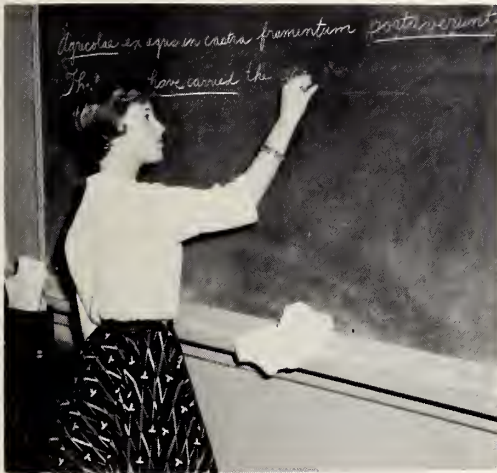 Agricolae ex agris in castra frumentum portaverunt
Th. have carried the